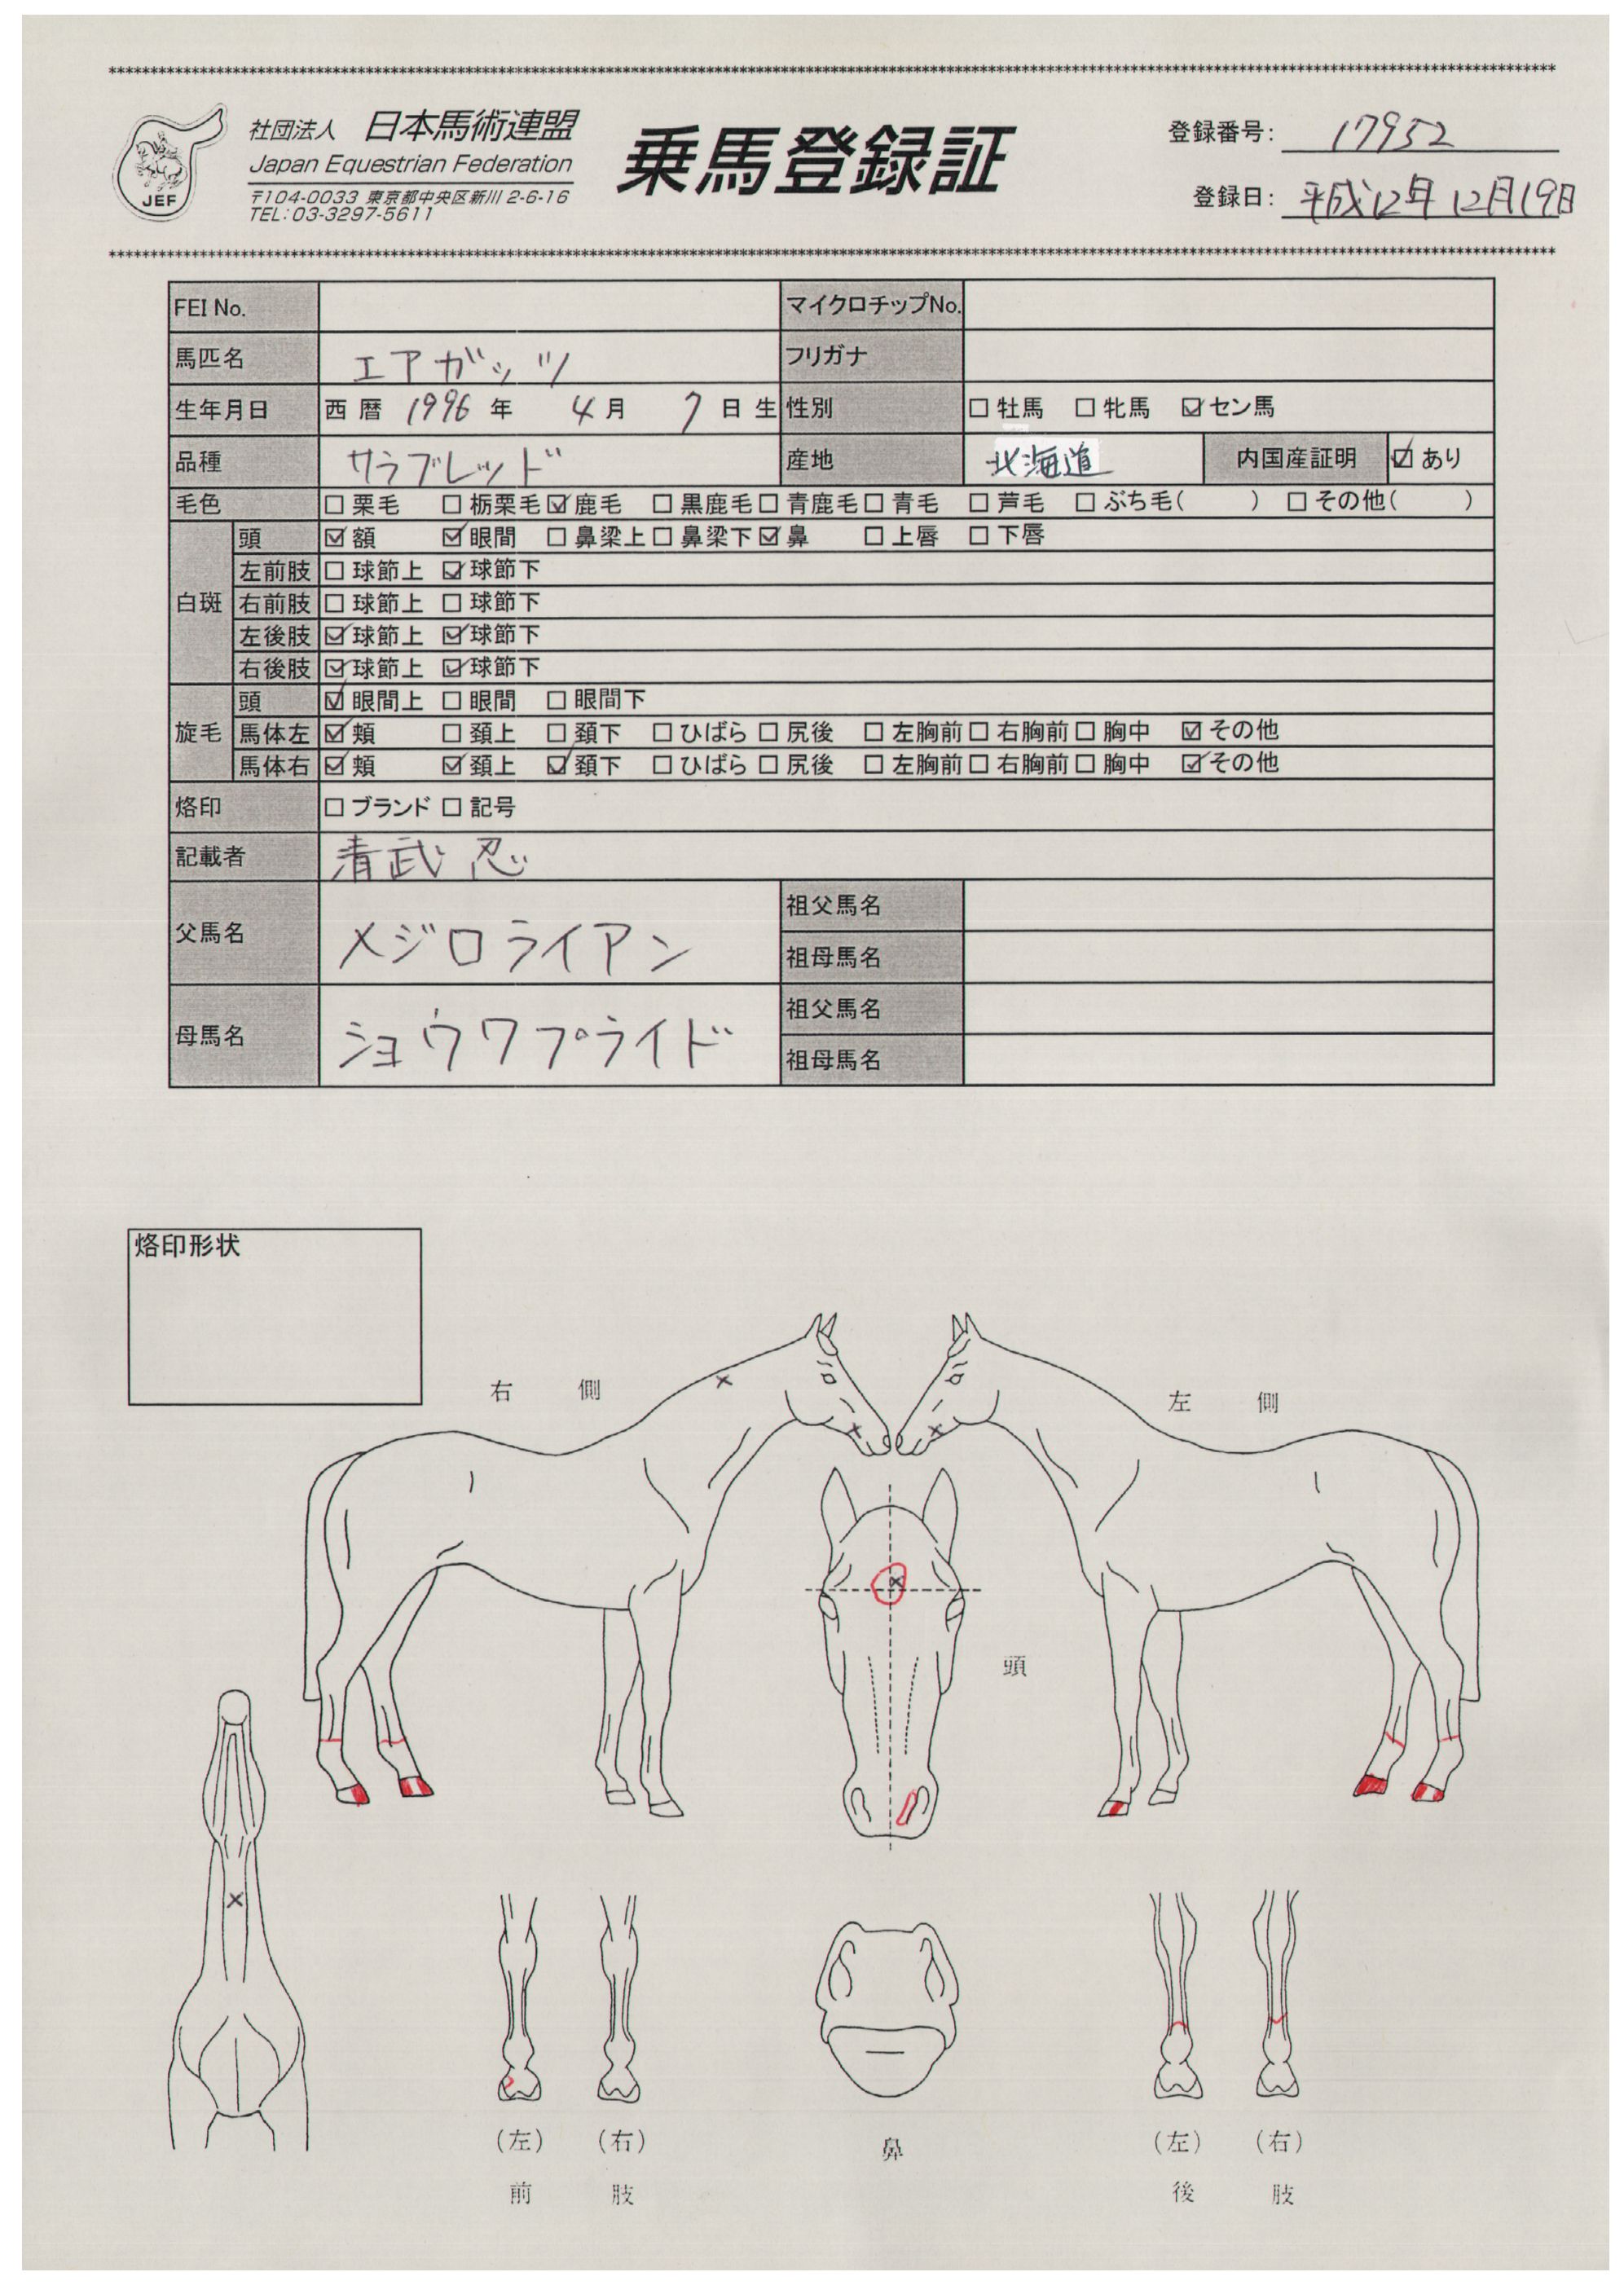 ************************************************************
社団法人 日本馬術連盟 乗馬登録証 登録番号: 17952
Japan Equestrian Federation
JEF 〒104-0033 東京都中央区新川 2-6-16 登録日: 平成12年12月19日
TEL:03-3297-5611
************************************************************
FEI No. マイクロチップNo.
馬匹名 エアガッツ フリガナ
生年月日 西暦 1996 年 4 月 7 日 生 性別 □ 牡馬 □ 牝馬 ☑ セン馬
品種 サラブレッド 産地 北海道 内国産証明 ☑ あり
毛色 □ 栗毛 □ 栃栗毛 ☑ 鹿毛 □ 黒鹿毛 □ 青鹿毛 □ 青毛 □ 芦毛 □ ぶち毛( ) □ その他( )
白斑 頭 ☑ 額 ☑ 眼間 □ 鼻梁上 □ 鼻梁下 ☑ 鼻 □ 上唇 □ 下唇
左前肢 □ 球節上 ☑ 球節下
右前肢 □ 球節上 □ 球節下
左後肢 ☑ 球節上 ☑ 球節下
右後肢 ☑ 球節上 ☑ 球節下
旋毛 頭 ☑ 眼間上 □ 眼間 □ 眼間下
馬体左 ☑ 頬 □ 頚上 □ 頚下 □ ひばら □ 尻後 □ 左胸前 □ 右胸前 □ 胸中 ☑ その他
馬体右 ☑ 頬 ☑ 頚上 ☑ 頚下 □ ひばら □ 尻後 □ 左胸前 □ 右胸前 □ 胸中 ☑ その他
烙印 □ ブランド □ 記号
記載者 清武 忍
父馬名 メジロライアン 祖父馬名
祖母馬名
母馬名 ショウワプライド 祖父馬名
祖母馬名
烙印形状
右 側 左 側
頭
(左) (右) 鼻 (左) (右)
前 肢 後 肢